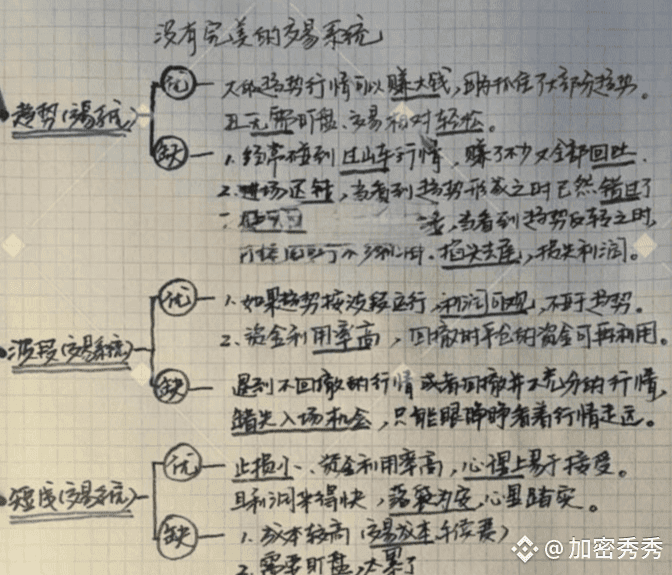 没有完美的交易系统
趋势(交易系统)
优
大的趋势行情可以赚大钱,因为抓住了大部分趋势。
且无需盯盘、交易相对轻松。
缺
1. 经常碰到过山车行情,赚了不少又全部回吐.
2. 进场迟钝,当看到趋势形成之时已然错过了
一 ,当看到趋势反转之时,
损失利润。
波段(交易系统)
优
1. 如果趋势按波段运行,利润可观,不亚于趋势。
2. 资金利用率高,回撤时平仓的资金可再利用。
缺
遇到不回撤的行情或者回撤并不充分的行情,
错失入场机会,只能眼睁睁看着行情走远。
短线(交易系统)
优
止损小、资金利用率高,心理上易于接受。
且利润来得快,落袋为安,心里踏实。
缺
1. 成本较高(交易成本手续费)
2. 需要盯盘,太累了
@加密秀秀